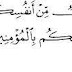 مِّنْ أَنفُسِكـ
ـكُم بِالْمُؤْمِنِيـ